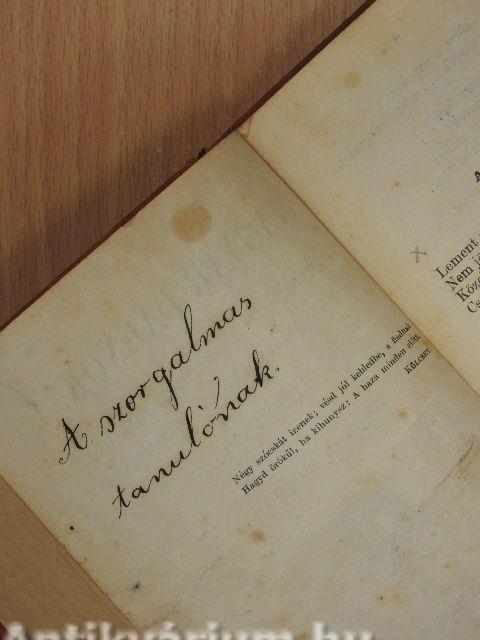 A szorgalmas
tanulónak.
Négy szócskát izenek; vésd jól kebledbe, s fiadnak
Hagyd örökűl, ha kihunysz: A haza minden előtt.
KÖLCSEY
A
Lement
Nem jö
Köze
Cs
Antikvárium.hu